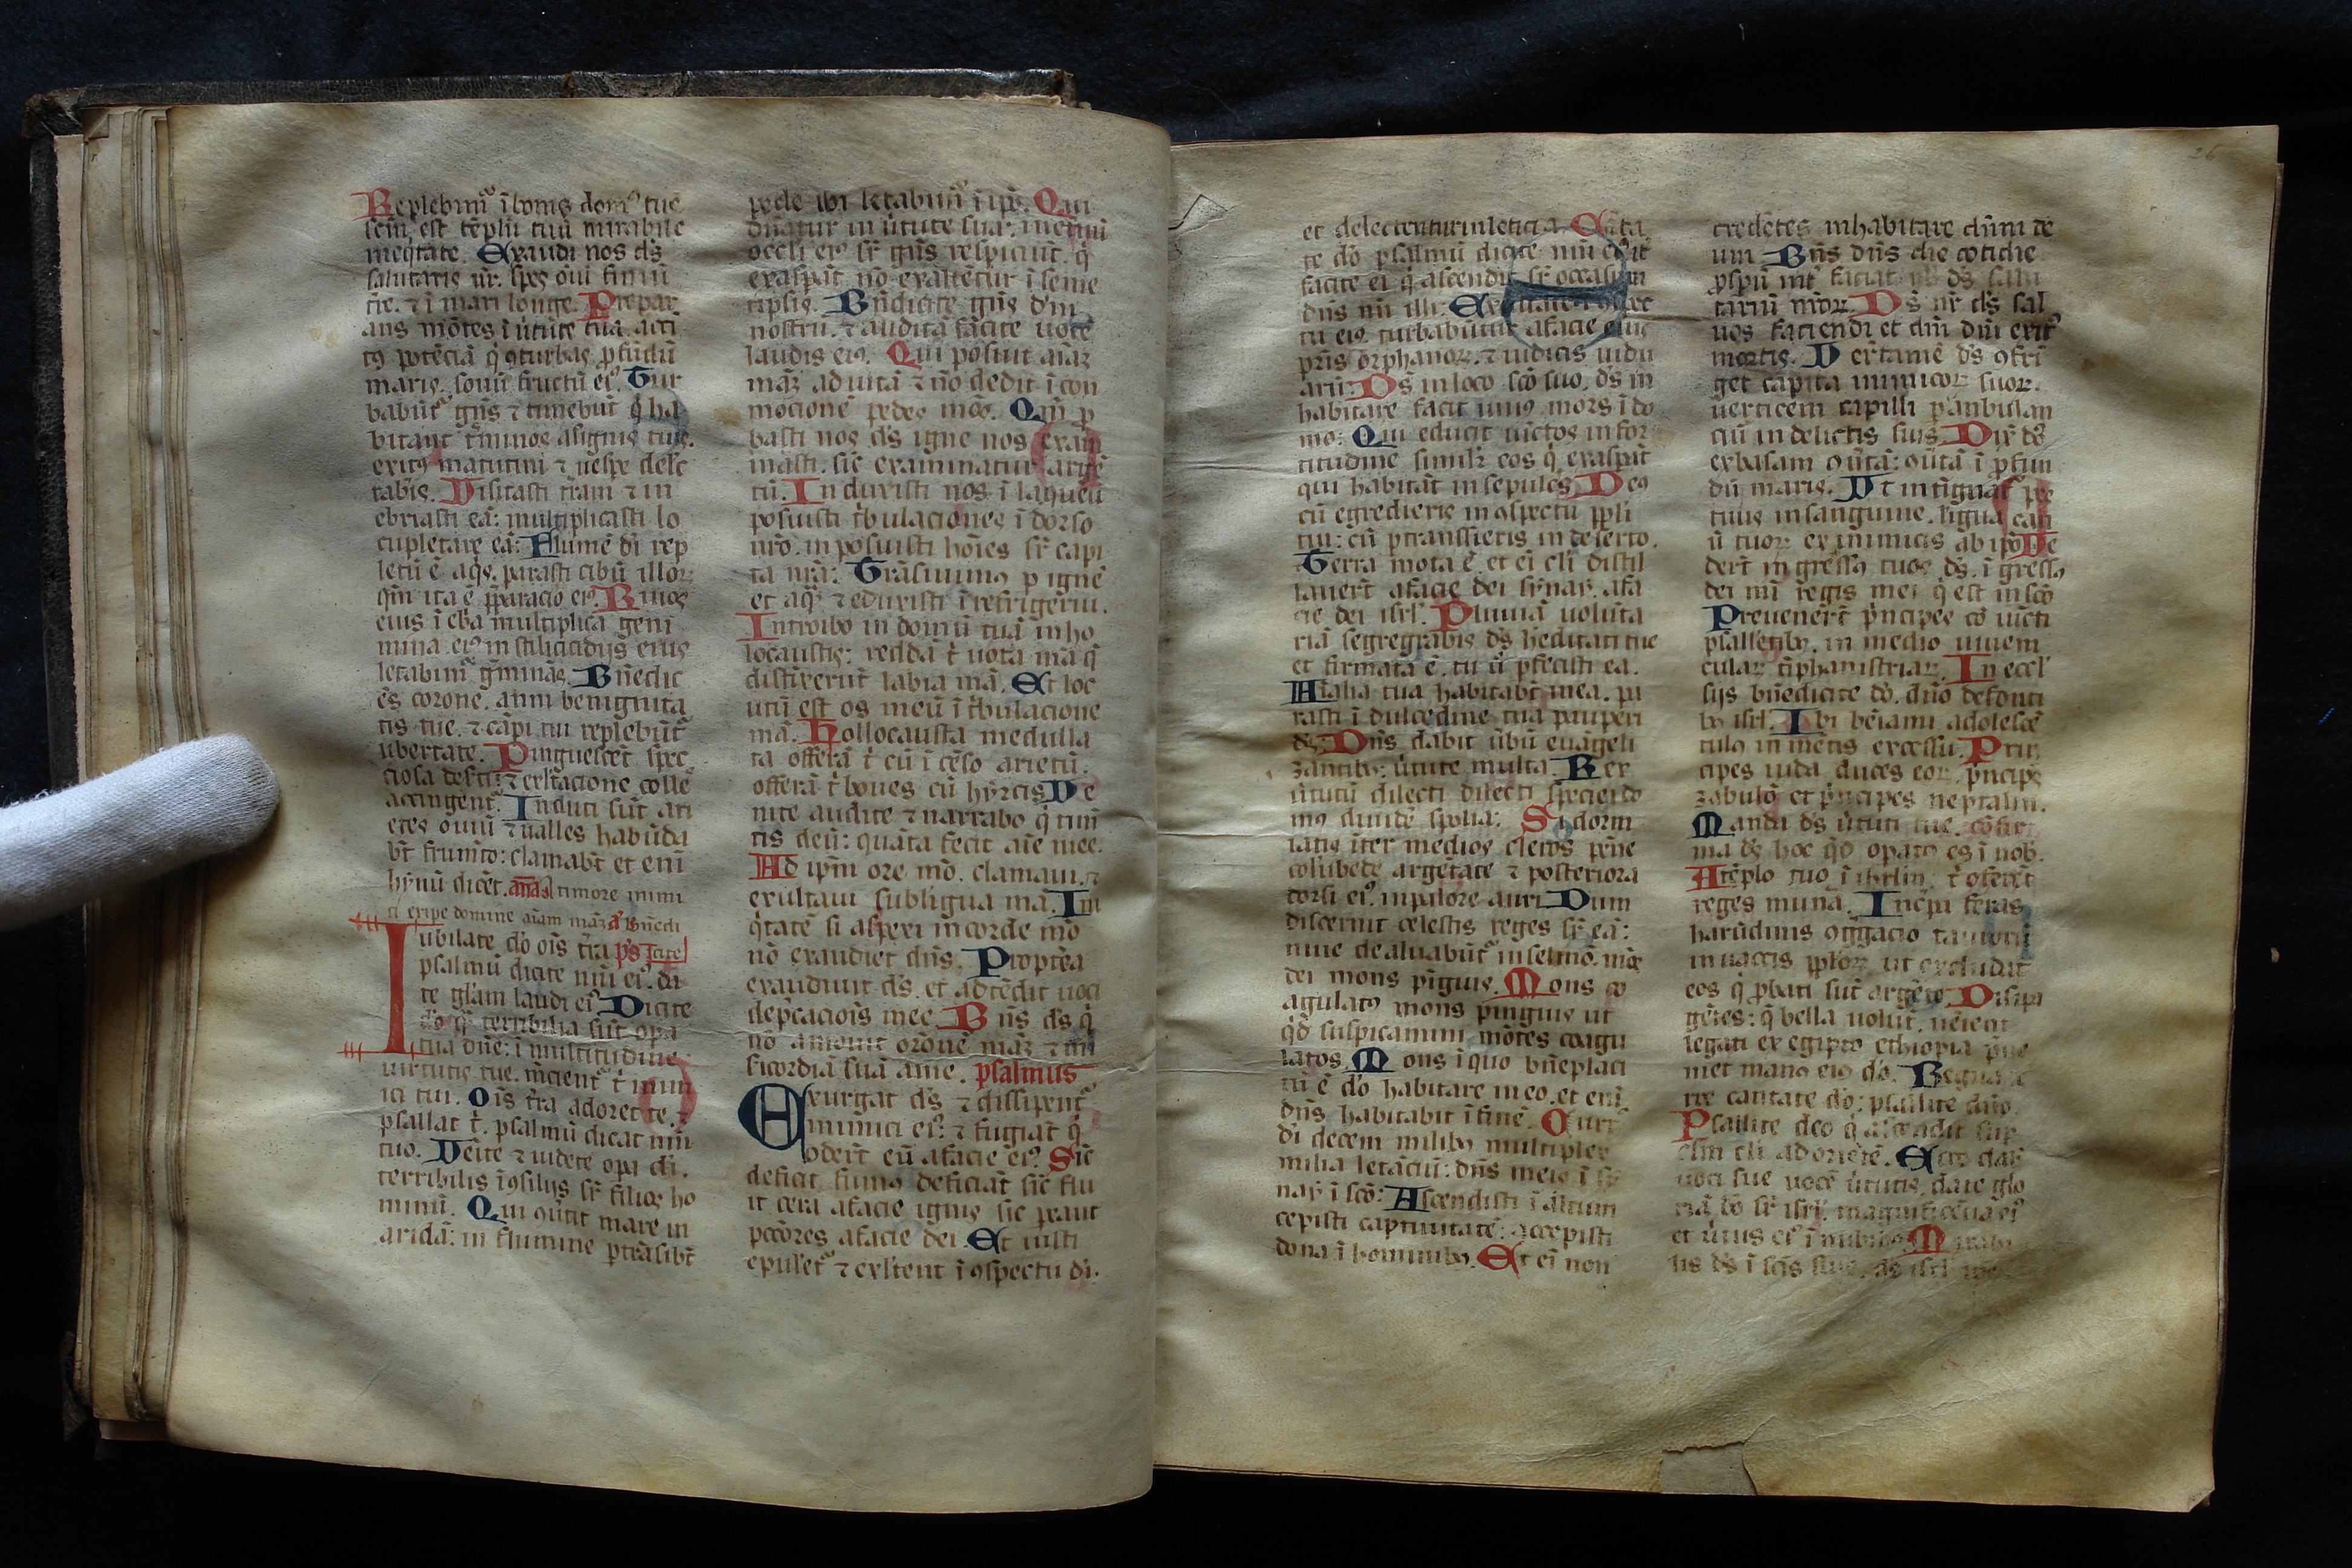 Replebim᷑ ī bonis dom᷒ tue
scm̄ est tēplū tuū mirabile
in eq̄tate. Exaudi nos ds̄
salutaris nr̄. spes oīū finiū
tr̄e. ⁊ ī mari longe. Prepar
ans mōtes ī ūtute tua. acci
tꝯ potēciā q̄ ꝯturbas ꝓfūdū
maris. sonū fructū ei᷒. Tur
babūt᷑ gn̄s ⁊ timebūt q̄ ha
bitant t̄minos a signis tuis.
exitꝯ matutini ⁊ uesp̄e delc
tabīs. Visitasti tr̄am ⁊ in
ebriasti eā: multiplicasti lo
cupletare eā: Flumē dī rep
letū ē aq̄s. parasti cibū illoꝝ
qm̄ ita ē p̄paracio ei᷒. Riuos
eius ī ebͥa multiplica geni
mina ei᷒ in stilicidijs eius
letabim᷑ gm̄inās. Bn̄edic
ēs corone. anni benignita
tis tue. ⁊ cāpi tui replebūt᷑
ubertate. Pinguescēt spec
ciosa deserti. ⁊ exl̄tacione colle
accingent᷑. Induti sūt ari
etes ouiū ⁊ ualles habūda
bt̄ frumto: clamabt̄ et enī
hȳnū dicēt. an̄a A timore inimi
ci eripe domine aīam mā᷒ a᷒ Bn̄edi
Iubilate dō oīs tr̄a ps̄ cite
psalmū dicite nn̄i ei᷒. da
te gl̄am laudi ei᷒ Dicite
dō q̄ terribilia sūt opa
tua dn̄e: ī multitudine
uirtutis tue. mēcient᷑ t̄ inim
ici tui. Oīs tr̄a adoret te. ⁊
psallat t̄. psalmū dicat nn̄i
tuo. Veīte ⁊ uidete opa dī.
terribilis ī ꝯsilijs sr̄ filios ho
minū. Qui ꝯūtit mare in
aridā: in flumine ptrāsibt̄
pede ibi letabim᷑ ī ip̄o. Qui
dn̄atur in ūtute sua. in etnū
occli ei᷒ sr̄ gn̄s respiciūt. q̄
exasp̄āt nō exaltēctur ī seme
tip̄sis. Bn̄dicite gn̄s dm̄
nostrū. ⁊ auditā fācite uocē
laudis ei᷒. Qui posuit aīaꝫ
māꝫ ad uitā ⁊ nō dedit ī con
mocionē pedes mōs. Qm̄ ꝓ
basti nos ds̄ igne nos exam
inasti. sic̄ examinatur argē
tū. Induxisti nos ī laqueū
posuisti t̄bulaciones ī dorso
nrō. in posuisti hoīes sr̄ capi
ta nr̄ā: Trāsiuim᷒ p ignē
et aq̄. ⁊ eduxisti ī refrigeriū.
Introibo in domū tuā in ho
locaustis: reddā t̄ uota mā q̄
distixerūt labia mā. Et loc
utū est os meū ī t̄bulacione
mā. Hollocausta medulla
ta offerā t̄ cū īcēso arietū.
offerā t̄ boues cū hyrcis Ve
nite audite ⁊ narrabo q̄ timī
tis deū: quāta fecit aīe mee.
Ad ip̄m ore mō. clamaui. ⁊
exultaui sublīgua mā. Ini
q̄tatē si aspexi in corde mō
nō exaudiet dn̄s. Proptēa
exaudiuit ds̄. et adtēdit uoci
dep̄cacīois mee. Bn̄s ds̄ q̄
nō amouit orōnē māꝫ ⁊ mī
sicordiā suā ame. psalmus
Exurgat ds̄ ⁊ dissipent᷑
inimici ei᷒: ⁊ fugiāt q̄
oderūt eū a facie ei᷒ Sic̄
deficit fumꝯ deficiāt sic̄ flu
it cera afacie ignis sic peant
pccōres afacie dei. Et iusti
epulet᷑ ⁊ exl̄tent ī ꝯspectu dī.
26
et delectentur in leticia. Cāta
te dō psalmū dicite nn̄i ei᷒ it̄
facite ei q̄ ascendit sr̄ occasum
dn̄s nn̄ illi. Exultate ī ꝯspec
tu ei᷒. turbabūtur afacie eius
pr̄is orphanoꝝ. ⁊ iudicis uidu
arū. Ds̄ in loco scō suo. ds̄ in
habitare facit uniꝯ mors ī do
mo: Qui educit uīctos in for
titudine simil̄r eos q̄ exaspāt
qui habitāt in sepulcs̄ Deꝯ
cū egredieris in ꝯspectu pp̄li
tui: cū ptranssieris in deserto.
Terra mota ē. et eī cl̄i distil
lauerūt afacie dei synay. afa
cie dei isrl̄. Pluuiā uolūta
riā segregrabis ds̄ heditati tue
et firmata ē. tu ū pfecisti eā.
Aīalia tua habitabt̄ in ea. pa
rasti ī dulcedine tua paupēri
ds̄. Dn̄s dabit ūbū euāgeli
zantibꝯ: ūtute multa. Rex
ūtutū dilecti dilecti speciei do
mꝯ diuidē spolia: Si dormi
iatis īter medios cleros pēne
colūbede argētate ⁊ posteriora
dorsi ei᷒. in palore auri Dum
discernit celestis reges sr̄ eā:
niue dealuabūt᷑ in selmō. mōs
dei mons pīguis. Mons co
agulatꝯ mons pinguis ut
qd̄ suspicamini mōtes coagu
latos. Mons ī quo bn̄eplaci
tū ē dō habitare in eo. et enī
dn̄s habitabit ī finē. Curr᷒
dī decem milibꝯ multiplex
milia letāciū: dn̄s in eis ī sy
nay ī scō: Ascendisti ī altum
cepisti captiuitatē: accepisti
dona ī hominibꝯ. Et eī non
credētes inhabitare dn̄m de
um Bn̄s dn̄s die cotidie
ꝓspū int̄ faciat nob̄ ds̄ salu
tariū nr̄oꝝ Ds̄ nr̄ ds̄ sal
uos faciendi et dn̄i dn̄i exit᷒
mortis. Vertamē ds̄ ꝯfrī
get cāpita inimicoꝝ suoꝝ.
ūerticem capilli pānbulan
ciū in delictis suis. Dix̄ ds̄
exbasam ꝯūtā: ꝯūtā ī ꝓfun
dū maris. Vt intīguat᷑ pes
tuus in sanguine. līgua can
ū tuoꝝ ex inimicis ab ip̄o Ve
dert̄ ingressꝯ tuos ds̄. īgressꝯ
dei mī regis mei q̄ est in scō
Preuenert̄ p̄ncipes cō iūcti
psallētibꝯ. in medio iuuem
cular t̄phanistriaꝝ. In eccl̄
sijs bn̄edicite dō. dn̄o defonti
bꝯ isrl̄. Ibi bēiami adolescē
tulꝯ in mētis excessu. Prin
cipes iuda duces eoꝝ. p̄ncipes
zabulō et p̄ncipes neptalim.
Manda ds̄ ūtuti tue. cōfir
ma ds̄ hoc qd̄ opatꝯ es ī nob̄.
A tēplo tuo ī ihrlm̄. t̄ offerēt
reges muna. Incp̄a feras
harūdinis ꝯḡgacio tauroꝝ
in uaccis pp̄loꝝ ut excludāt
eos q̄ ꝓbati sūt argēto. Dissipa
gētes: q̄ bella uolūt. uēient
legati ex egipto ethiopia p̄ue
niet manꝯ eiꝯ dō. Regna te
rre cantate dō: psallite dn̄o
Psallite deo q̄ ascendit sup
clm̄ cl̄i ad oriētē. Ecce dabt̄
uoci sue uocē ūtutis. date glo
riā dō sr̄ isrl̄. magnificēcia ei᷒
et ūtus ei᷒ ī nubibꝯ Mirabi
lis ds̄ ī scīs suis. ds̄ isrl̄